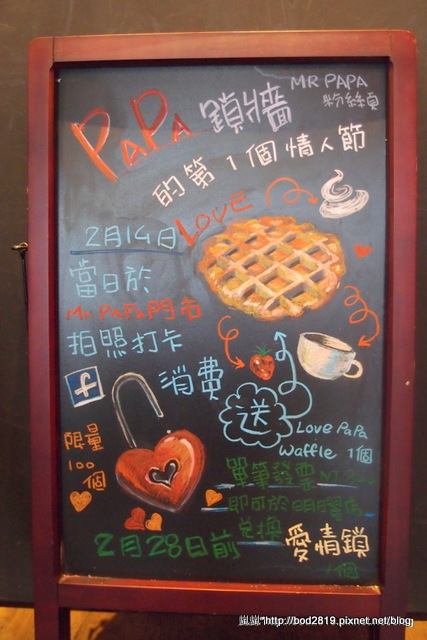 PAPA 鎖牆
MR PAPA
粉絲頁
的第1個情人節
LOVE
2月14日
當日於
Mr PAPA門市
拍照打卡
消費
f
送
Love PaPa
Waffle 1個
限量
100
個
單筆發票
即可於明曜店
兌換
愛情鎖
1個
2月28日前
嵐嵐"http://bod2819.pixnet.net/blog